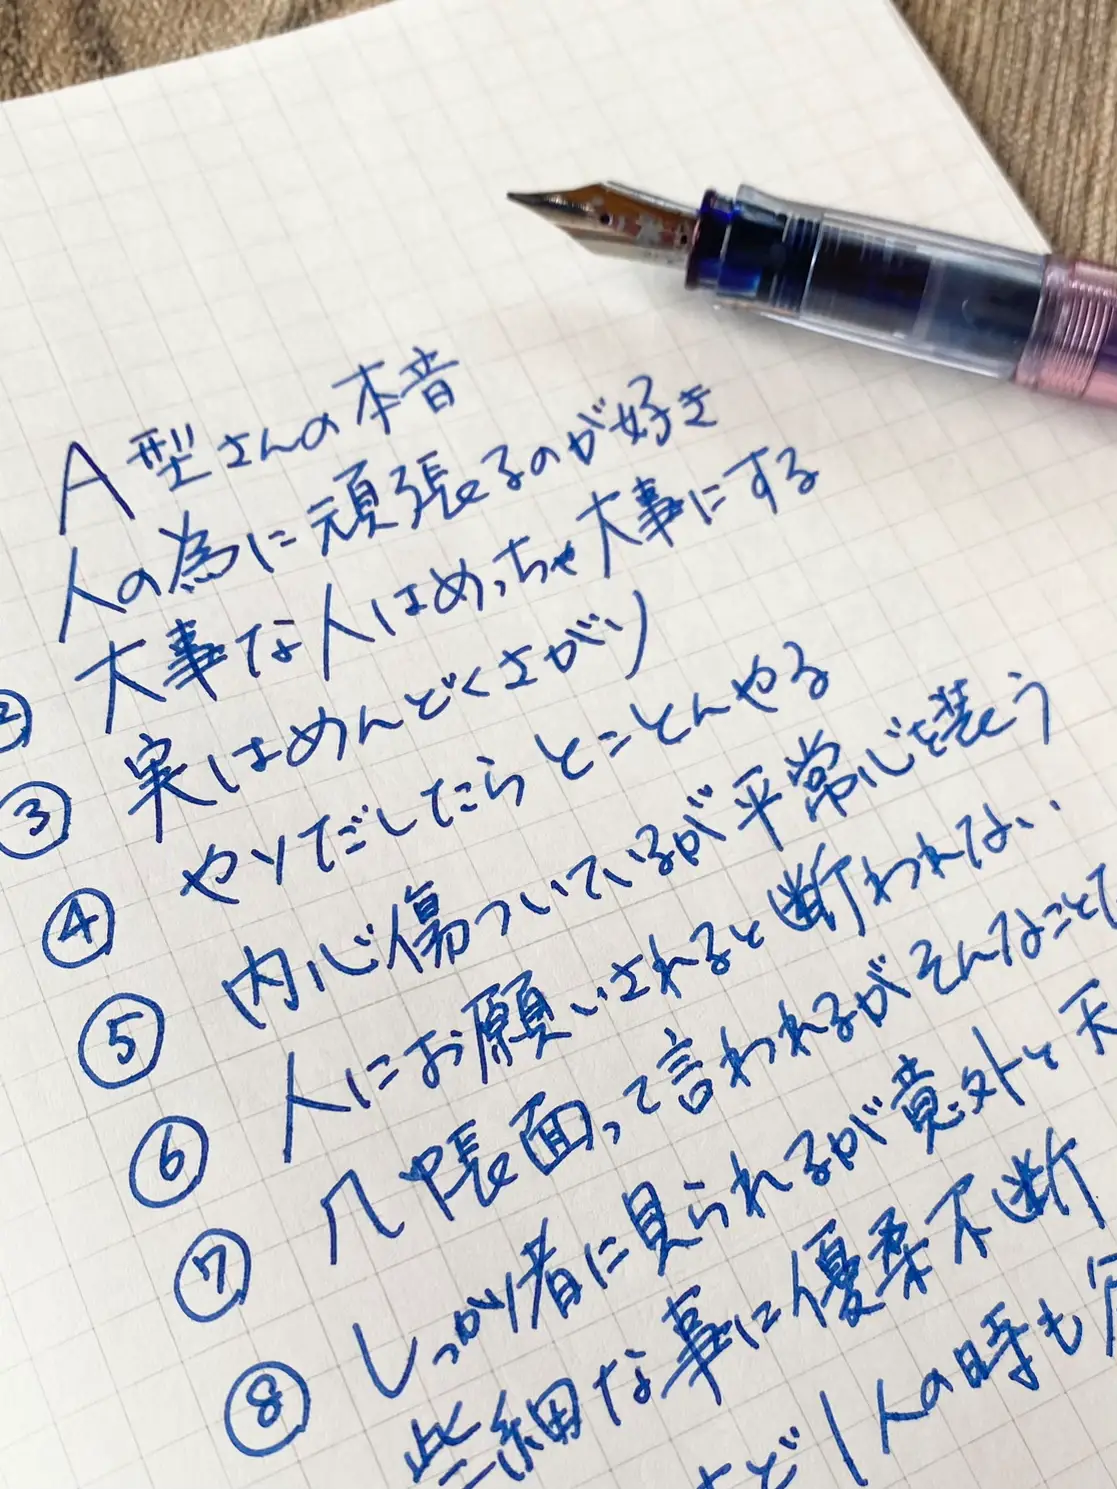 A型さんの本音
人の為に頑張るのが好き
② 大事な人はめっちゃ大事にする
③ 実はめんどくさがり
④ やりだしたらとことんやる
⑤ 内心傷ついているが平常心を装う
⑥ 人にお願いされると断われない
⑦ 几帳面って言われるがそんなこと
⑧ しっかり者に見られるが意外と天
些細な事に優柔不断
1人の時も